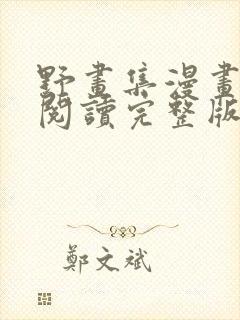 野畫集漫畫
閱讀完整版
鄭文斌